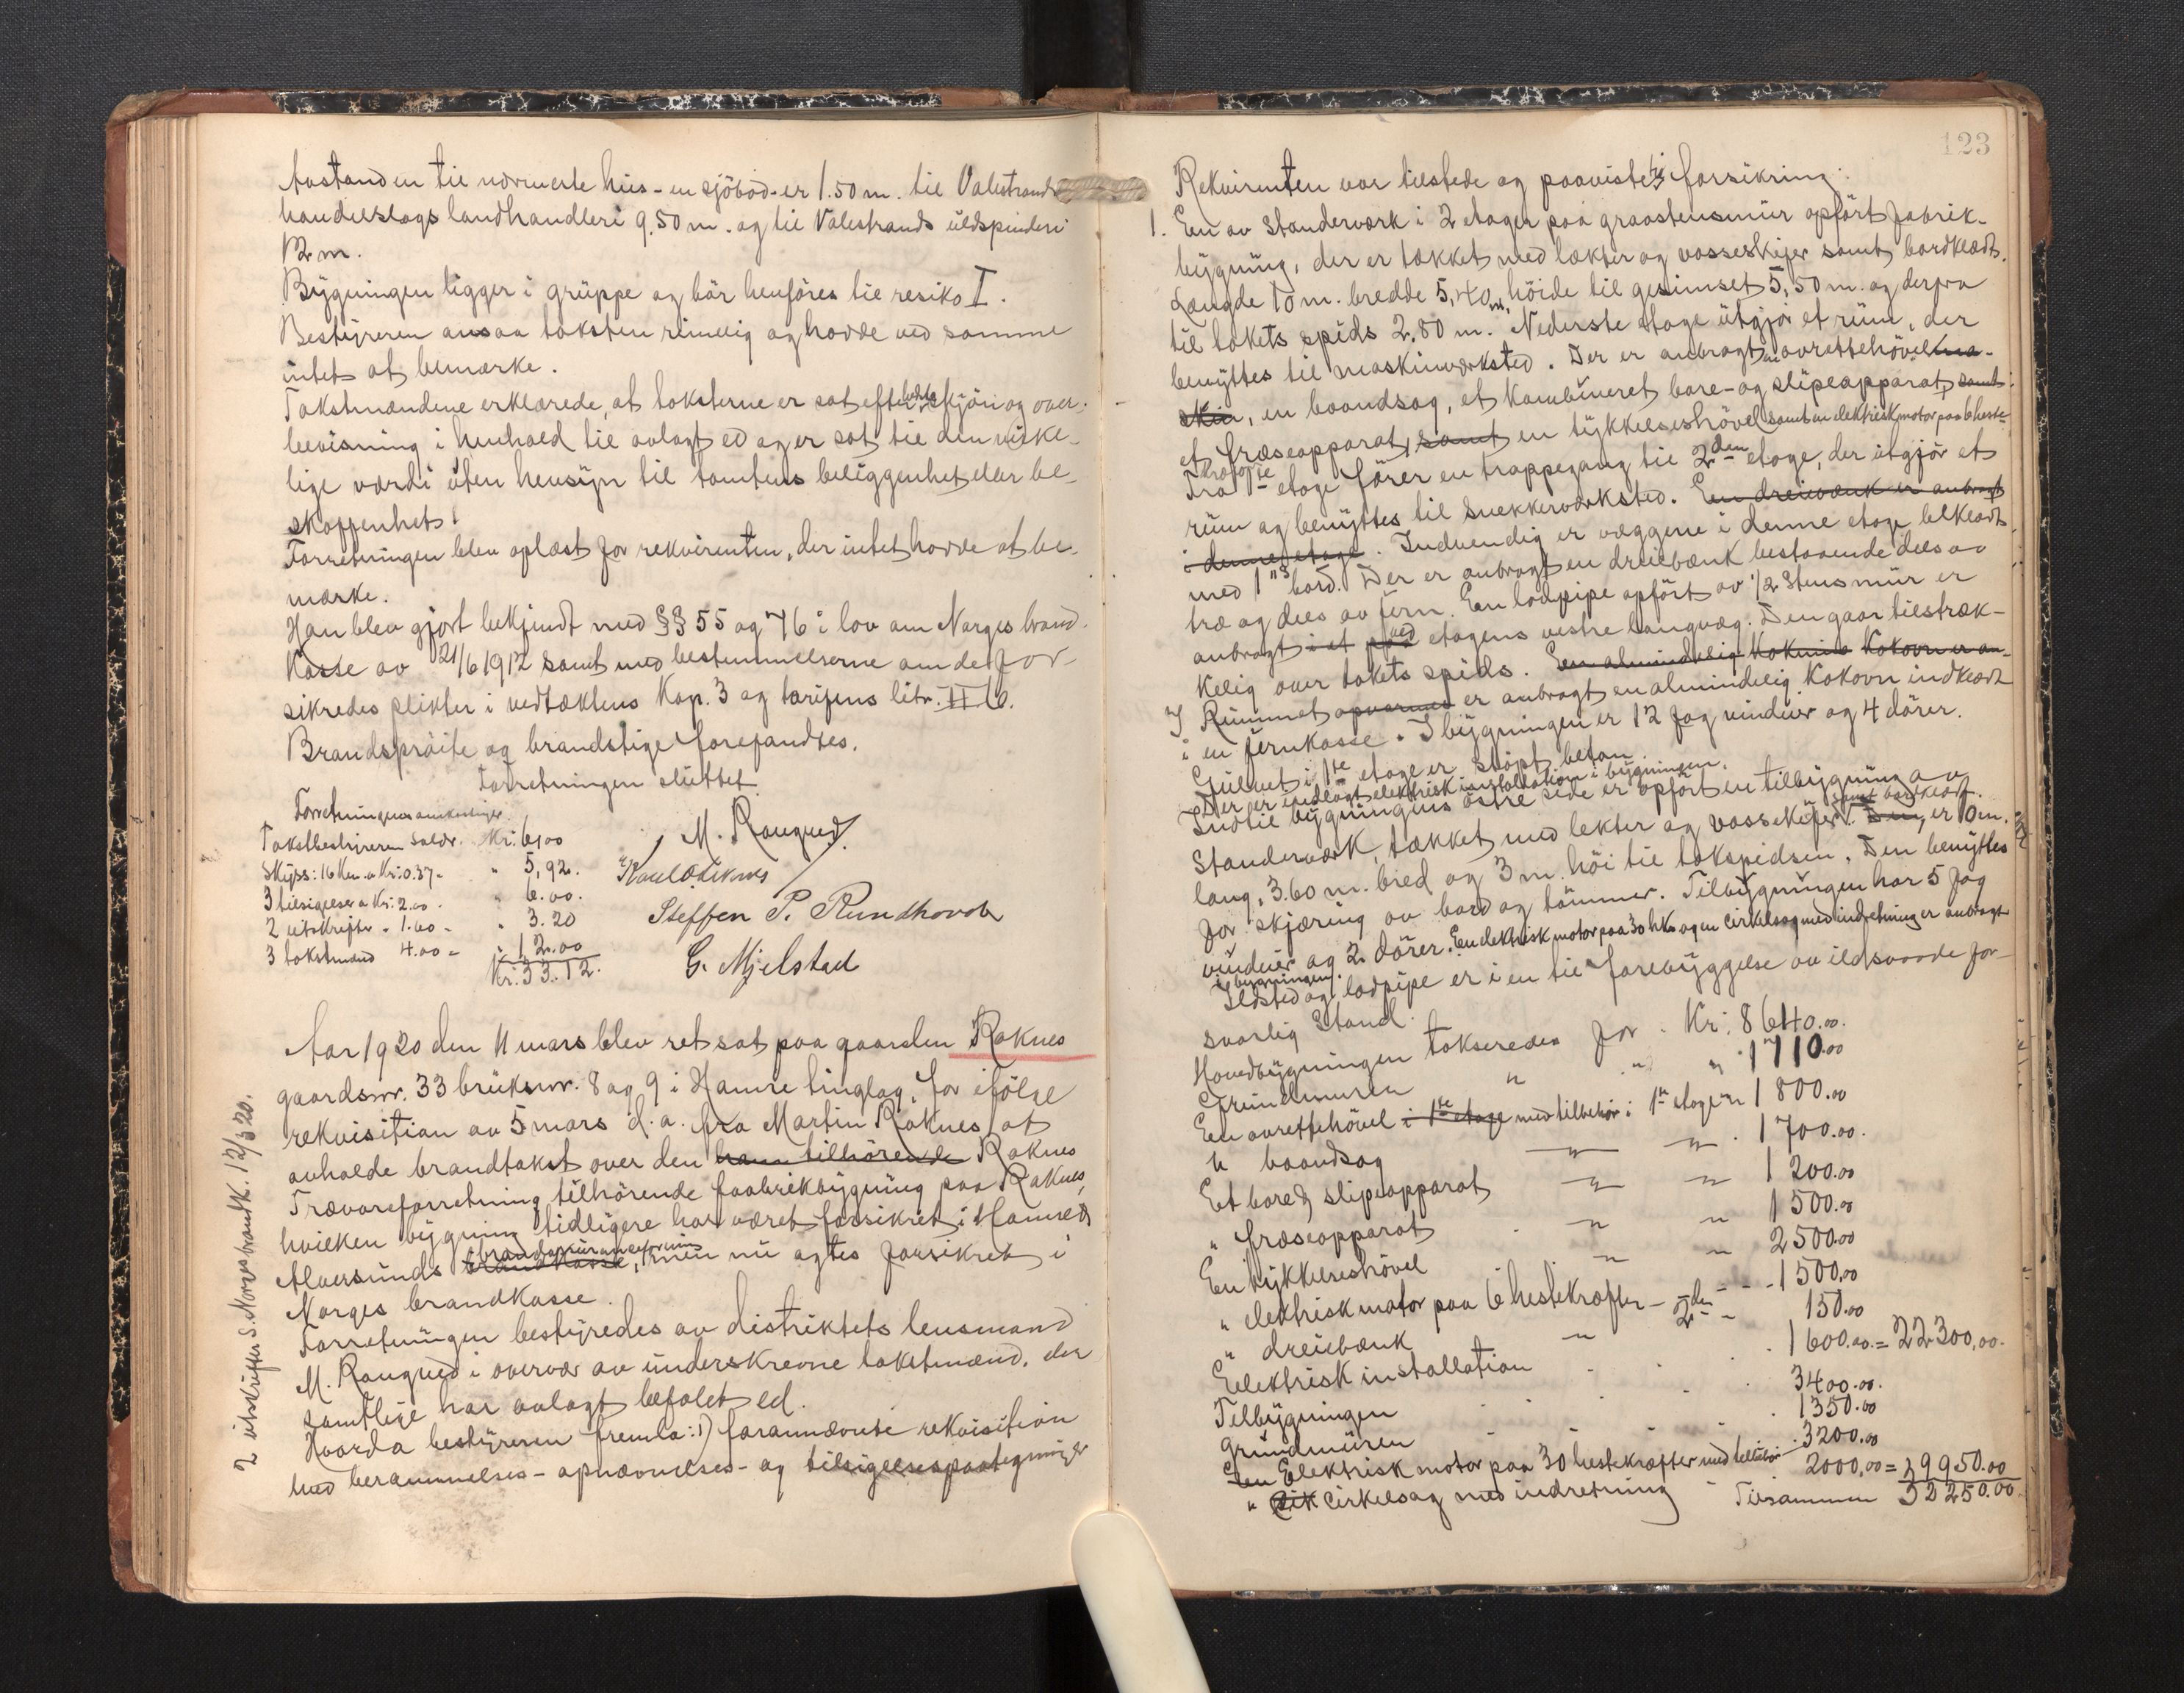 Avstanden til nærmeste hus - en sjöbod - er 1.50 m. til Valestrands
handelslags landhandleri 9.50 m. og til Valestrands uldspinderi
12 m.
Bygningen ligger i gruppe og bör henföres til resiko I.
Bestyreren ansaa taksten rimelig og havde ved samme
intet at bemærke.
Takstmændene erklærede, at taksterne er sat efter bedste skjön og over-
bevisning i henhold til avlagt ed og er sat til den virke-
lige værdi uten hensyn til tomtens beliggenhet eller be-
skaffenhet.
Forretningen blev oplæst for rekvirenten, der intet havde at be-
mærke.
Han blev gjort bekjendt med §§ 55 og 76 i lov om Norges brand-
kasse av 21/6 1912 samt med bestemmelserne om de for-
sikredes plikter i vedtæktens Kap. 3 og tarifens litr. II 6.
Brandspröite og brandstige forefandtes.
Forretningen sluttet
Forretningens omkostninger.
Takstbestyreren salær. Kr: 6,00
Skyss: 16 Km. a Kr: 0.37 - " 5,92.
3 tilsigelser a Kr: 2.00 - " 6.00.
2 utskrifter " 1.60 - " 3.20
3 takstmænd 4.00 = " 12.00
Kr: 33.12.
M. Raugued.
Steffen P. Rundhovde
G. Mjelstad
Aar 1920 den 11 mars blev ret sat paa gaarden Raknes
gaardsnr. 33 bruksnr. 8 og 9 i Hamre tinglag, for ifölge
rekvisition av 5 mars d.a. fra Martin Raknes at
avholde brandtakst over den ham tilhörende Raknes
Trævareforretning tilhörende fabrikbygning paa Raknes,
hvilken bygning tidligere har været forsikret i Hamre &
brandassuranceforening
Alversunds brandkasse, men nu agtes forsikret i
Norges brandkasse.
Forretningen bestyredes av distriktets lensmand
M. Raugued i overvær av underskrevne takstmænd, der
samtlige har avlagt befalet ed.
Hvorda bestyreren fremla: 1) forannævnte rekvisition
med berammelses - opnævnelses - og tilsigelsespaategninger
2 utskrifter S. Norges brandk. 12/3 20.
123
Rekvirenten var tilstede og paaviste til forsikring:
1. En av standerværk i 2 etager paa graastensmur opfört fabrik-
bygning, der er tækket med lækter og vosseskifer samt bordklædt.
Længde 10 m. bredde 5,40 m, höide til gesimset 5,50 m. og derfra
til takets spids 2,80 m. Nederste etage utgjör et rum, der
benyttes til maskinværksted. Der er anbragt en avrettehövelma-
skin, en baandsag, et kombineret bore- og slipeapparat, samt
et fræseapparat, samt en tykkelseshövel samt en elektrisk motor paa 6 heste-
kræfter
Fra 1ste etage förer en trappegang til 2den etage, der utgjör et
rum og benyttes til snekkerværksted. En dreiebænk er anbragt
i denne etage. Indvendig er væggene i denne etage belklædt
med 1"s bord. Der er anbragt en dreiebænk bestaaende dels av
træ og dels av jern. En lodpipe opfört av 1/2 stens mur er
anbragt i et paa ved etagens vestre langvæg. Den gaar tilstræk-
kelig over takets spids. En almindelig Kokovn er an-
I Rummet opvarmes er anbragt en almindelig Kokovn indklædt
i en jernkasse. I bygningen er 12 fag vinduer og 4 dörer.
Gulvet i 1ste etage er stöpt beton.
Der er indlagt elektrisk installation i bygningen.
Indtil bygningens östre side er opfört en tilbygning av
samt bordklædt.
Standerværk, tækket med lekter og vosseskifer. Den er 10 m.
lang, 3.60 m. bred og 3 m. höi til takspidsen. Den benyttes
for skjæring av bord og tömmer. Tilbygningen har 5 fag
vinduer og 2 dörer. En elektrisk motor paa 30 hk. og en cirkelsag med indretning er anbragt
i bygningen.
Ildsted og lodpipe er i en til forebyggelse av ildsvaade for-
svarlig stand.
Hovedbygningen takseredes for Kr: 8640.00.
Grundmuren " " " 1710.00
En avrettehövel i 1ste etage med tilbehör i 1ste etage " 1800.00
" baandsag " " 1700.00.
Et bore & slipeapparat " " 1200.00
" fræseapparat " " 1500.00
En tykkelseshövel " " 2500.00
" elektrisk motor paa 6 hestekræfter - - - 1500.00
" dreiebænk " 2den - 150.00
Elektrisk installation 1600.00 = 22300,00.
Tilbygningen 3400.00.
Grundmuren 1350.00
En Elektrisk motor paa 30 hestekræfter med tilbehör 3200.00
" Cirkelsag med indretning 2000,00 = 9950.00
Tilsammen 32250.00